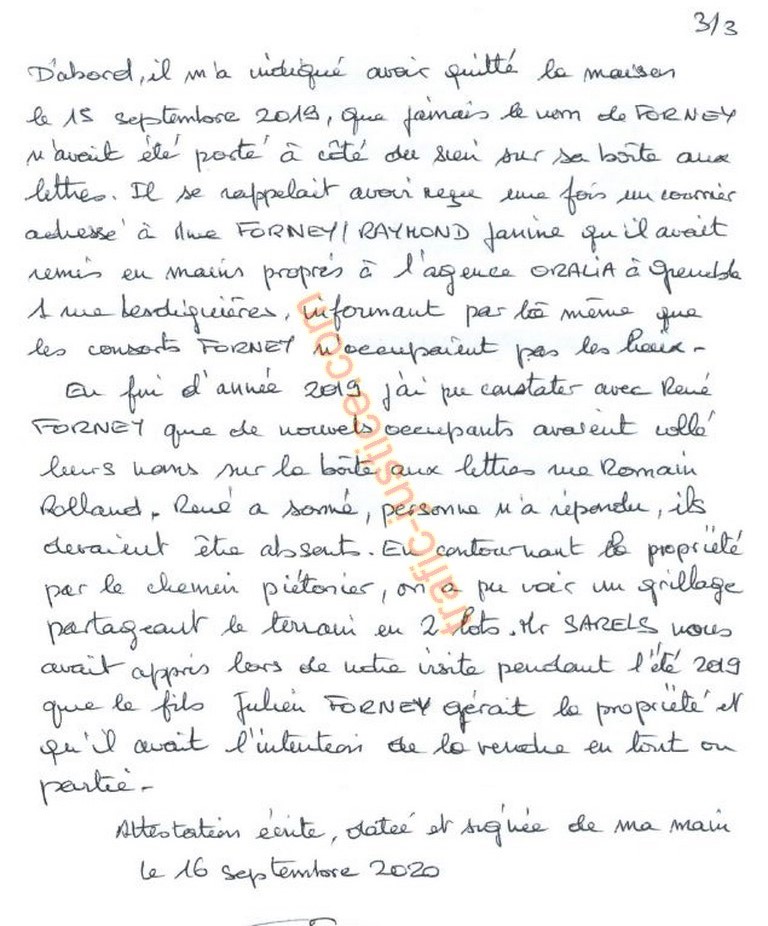 3/3
D'abord, il m'a indiqué avoir quitté la maison
le 15 septembre 2019, que jamais le nom de FORNEY
n'avait été porté à côté du sien sur sa boîte aux
lettres. Il se rappelait avoir reçu une fois un courrier
adressé à Mme FORNEY/RAYMOND Janine qu'il avait
remis en mains propres à l'agence ORALIA à Grenoble
1 rue Lesdiguières, informant par là même que
les consorts FORNEY n'occupaient pas les lieux -
En fin d'année 2019 j'ai pu constater avec René
FORNEY que de nouvels occupants avaient collé
leurs noms sur la boîte aux lettres rue Romain
Rolland. René a sonné, personne n'a répondu, ils
devaient être absents. En contournant la propriété
par le chemin piétonier, on a pu voir un grillage
partageant le terrain en 2 lots. Mr SARELS nous
avait appris lors de notre visite pendant l'été 2019
que le fils Julien FORNEY gérait la propriété et
qu'il avait l'intention de la vendre en tout ou
partie -
Attestation écrite, datée et signée de ma main
le 16 septembre 2020
trafic-justice.com